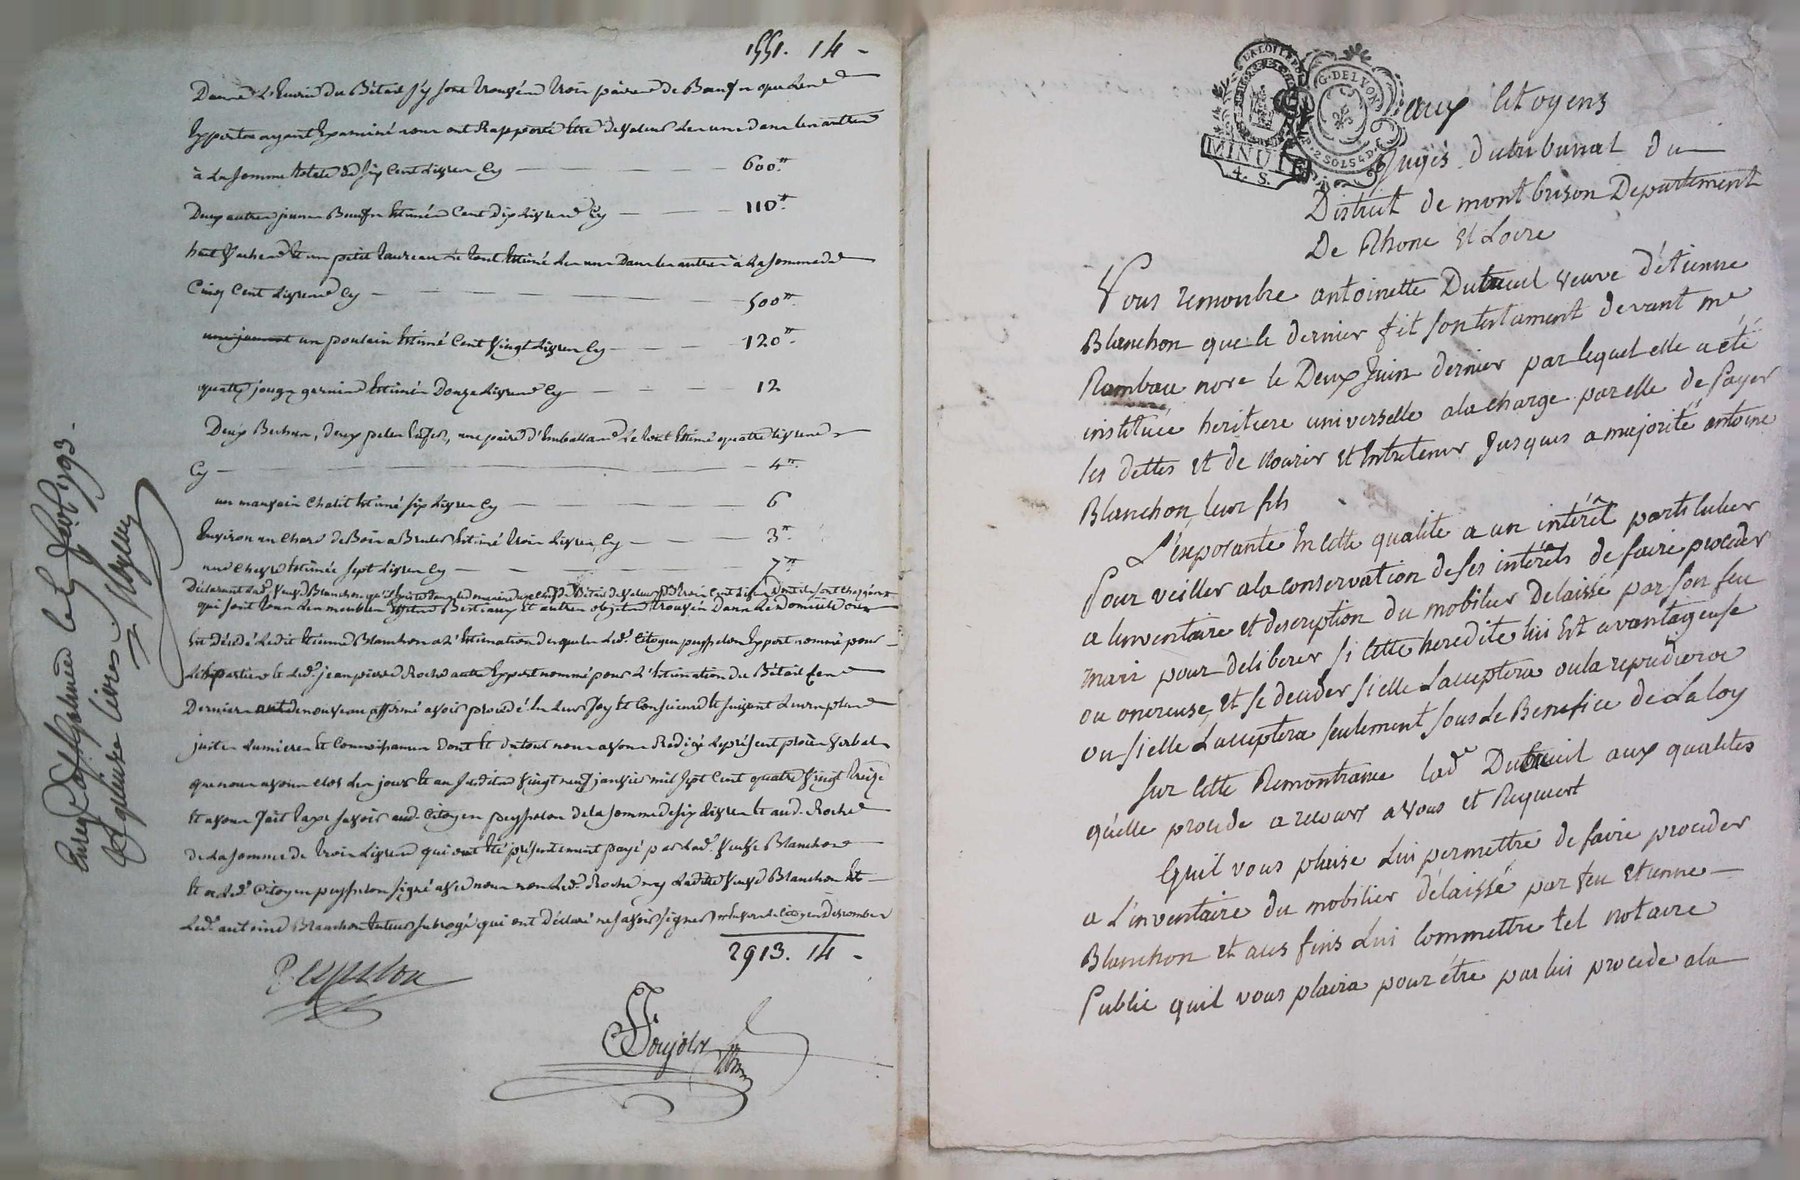 1551. 14 -
Dans L'Ecurie du Bétail s'y sont trouvés trois paires de Boeufs que Les
Experts ayant Examiné nous ont Rapporté être de valeur Les uns dans Les autres
à La somme totale de six Cent Livres Cy 600tt
Deux autres jeunes Boeufs Estimés Cent dix Livres Cy 110tt
huit Vaches et un petit taureau Le tout Estimé Les uns Dans Les autres à La somme de
Cinq Cent Livres Cy 500tt
une jument un poulain Estimé Cent Vingt Livres Cy 120tt
quatre jougs garnis Estimés Douze Livres Cy 12
Deux Bechus, deux peles de fer, une paire d'Emballans Le tout Estimé quatre Livres
Cy 4tt
un mauvais Chalit Estimé six Livres Cy 6
Environ un Chars de Bois a Bruler Estimé trois Livres Cy 3tt
une Chevre Estimée sept Livres Cy 7tt
Déclarant Lad. Veuve Blanchon
qui sont tous Les meubles Effets Bestiaux et autres objets trouvés Dans Le Domicile où
Est décédé Ledit Etienne Blanchon a L'Estimation desquels Led. Citoyen peysselon Expert nommé pour
Les parties et Led. jean pierre Roche autre Expert nommé pour L'Estimation du Bétail
Dernier de nouveau affirmé avoir procédé En Leur foy et Conscience et suivant Leurs plus
justes Lumieres et Connoissances Dont et du tout nous avons Rédigé Le présent procès Verbal
que nous avons clos Les jours et an susdits Vingt neuf janvier mil sept Cent quatre Vingt treize
et avons fait taxe savoir aud. Citoyen peysselon de la somme de six Livres et aud. Roche
de La somme de trois Livres qui ont été présentement payé par Lad. Veuve Blanchon
et a Led. Citoyen peysselon signé avec nous non Led. Roche ny Ladite Veuve Blanchon Et
Led. antoine Blanchon tuteur subrogé qui ont déclaré ne savoir signer
2913. 14 -
Peysselon
Enreg. a
1793.
Deux Citoyens
Juges du tribunal du
District de montbrison Departement
De Rhone et Loire
LA LOI ET LE
G. DEL VON
MINUTE
4. S.
P. 2 SOLS 4 D.
Vous remontre antoinette Duteuil veuve d'étienne
Blanchon que le dernier fit son testament devant me
Rambau nore le Deux Juin dernier par lequel elle a eté
instituée heritiere universelle a la charge par elle de payer
les dettes et de nourir et Entretenir Jusques a majorité antoine
Blanchon leur fils
L'exposante En cette qualite a un intérêt particulier
Pour veiller a la conservation de ses intérêts de faire proceder
a linventaire et description du mobilier Delaissé par son feu
mari pour deliberer si cette heredite lui Est avantageuse
ou onereuse, et se decider si elle Lacceptera ou la repudiera
ou si elle Lacceptera seulement sous Le Benefice de La loy
Sur cette Remontrance lade Duteuil aux qualites
quelle procede a recours a vous et Requiert
Equil vous plaise Lui permettre de faire proceder
a L'inventaire du mobilier délaissé par feu Etienne
Blanchon et aus fins Lui Commettre tel notaire
Public quil vous plaira pour être par lui procede a la